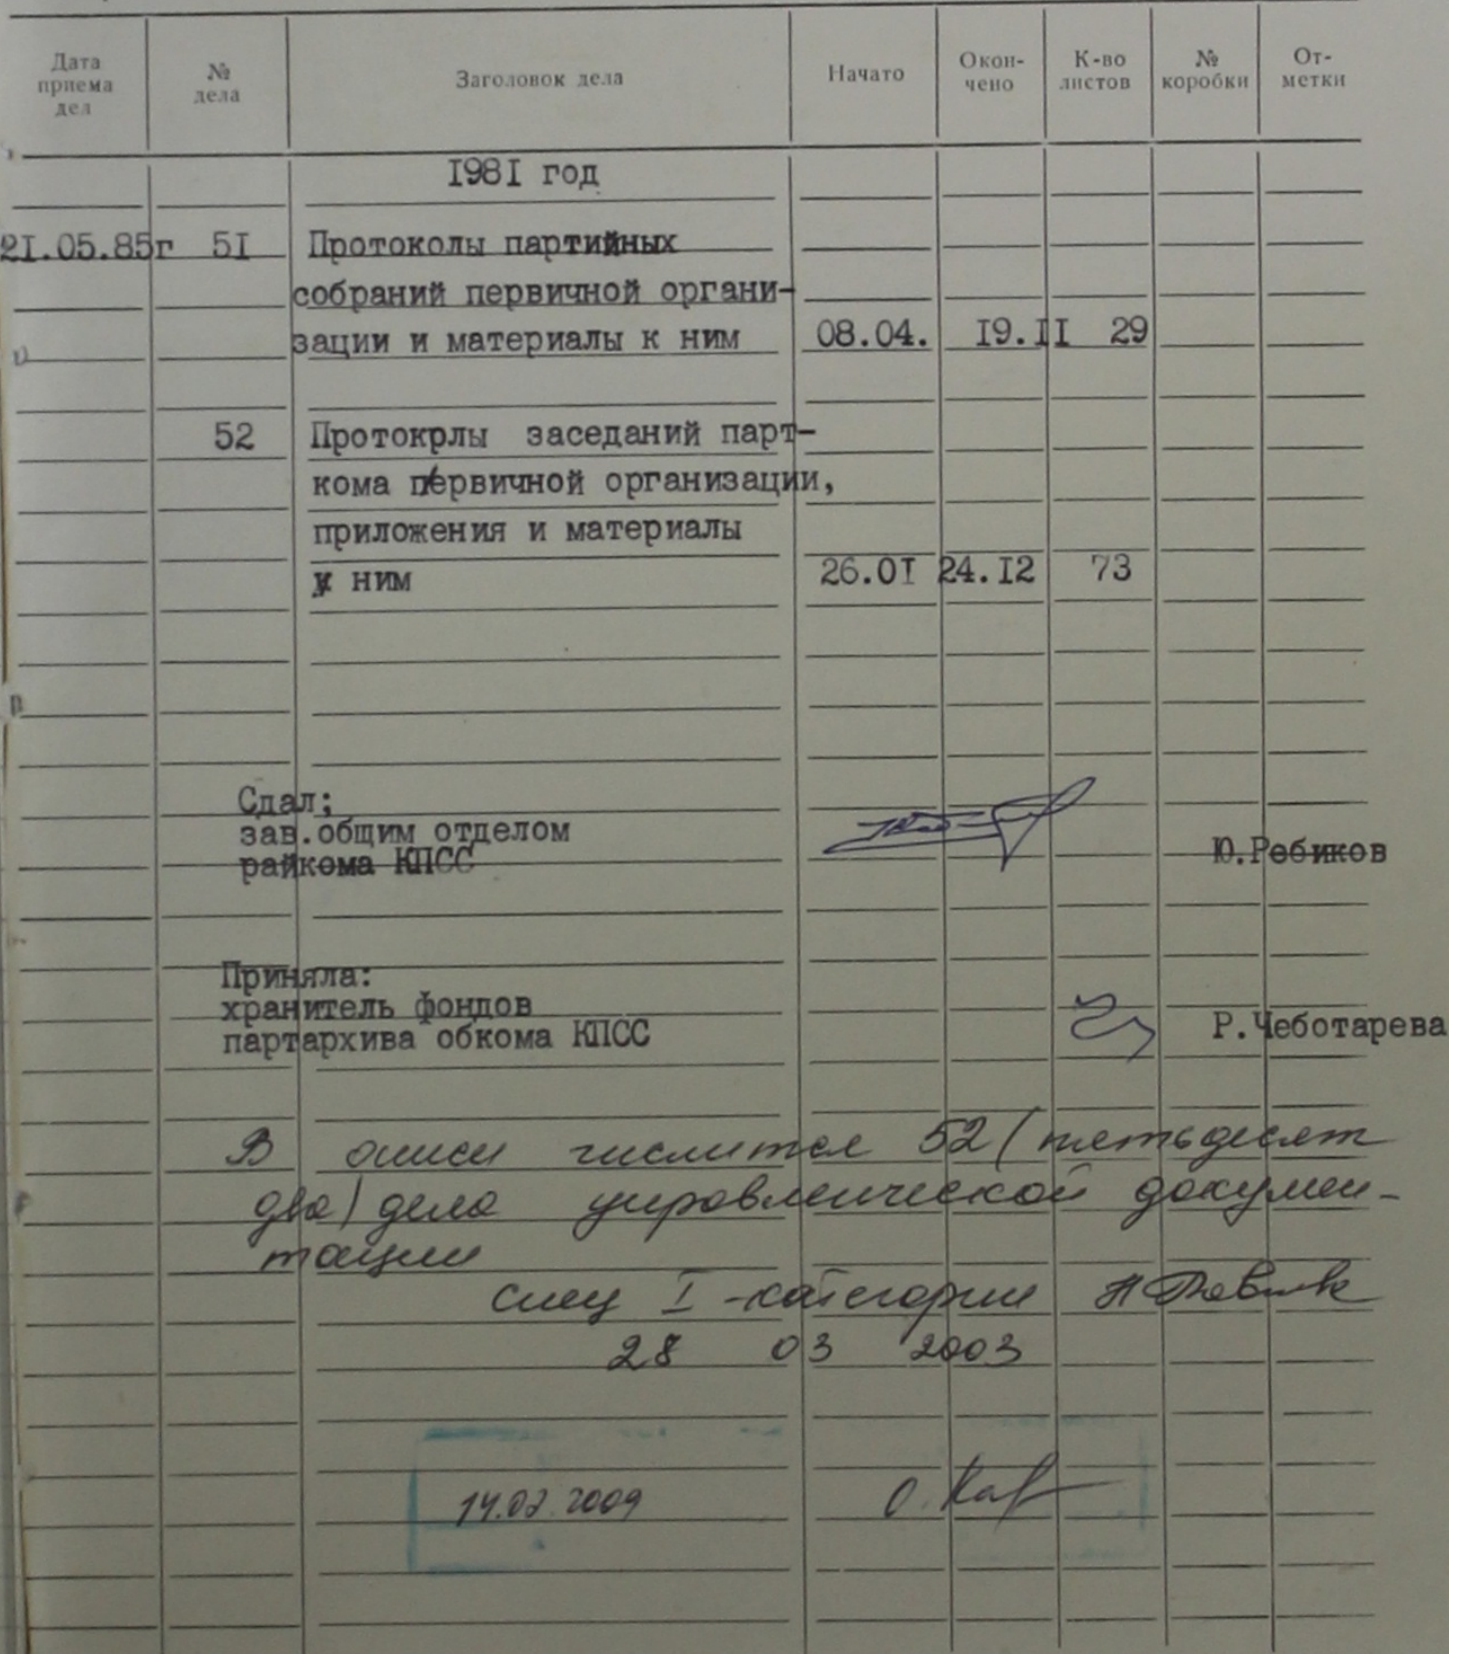 Дата приема дел № дела Заголовок дела Начато Окон- чено К-во листов № коробки От- метки
I98I год
2I.05.85г 5I Протоколы партийных
собраний первичной органи-
зации и материалы к ним 08.04. I9.II 29
52 Протокрлы заседаний парт-
кома первичной организации,
приложения и материалы
к ним 26.0I 24.I2 73
Сдал;
зав.общим отделом
райкома КПСС Ю.Ребиков
Приняла:
хранитель фондов
партархива обкома КПСС Р.Чеботарева
В описи числится 52 (пятьдесят
два) дела управленческой докумен-
тации
спец I-категории
28 03 2003